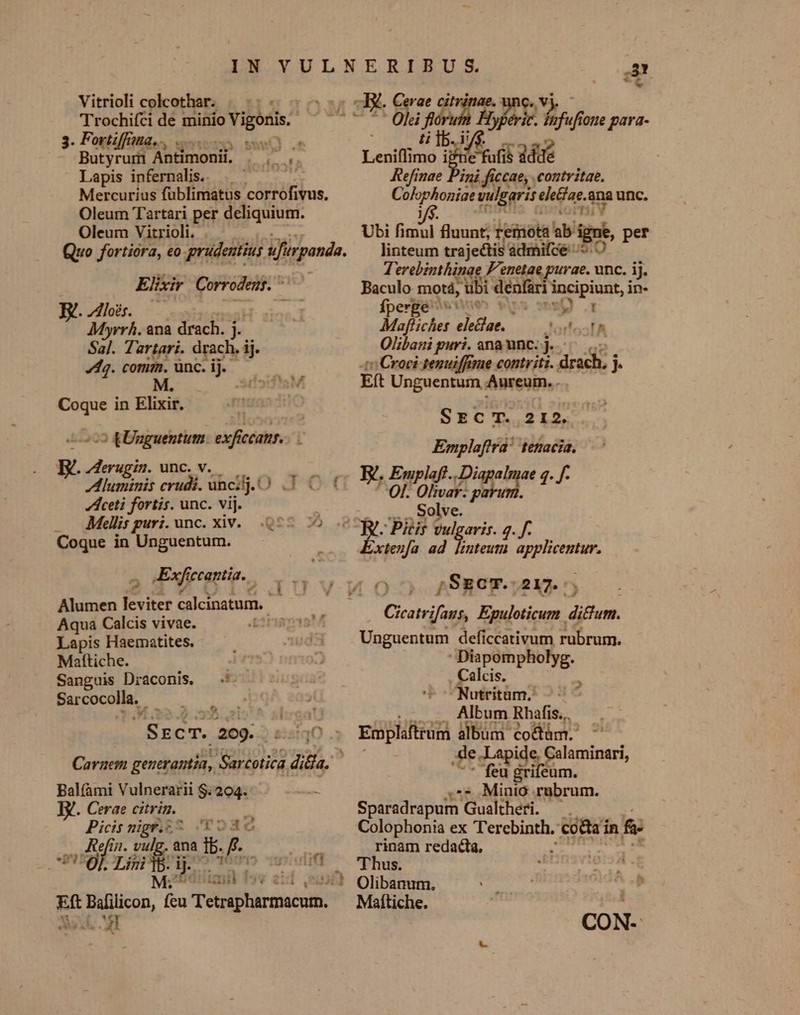 IN VULNERIBUS. 31
Vitrioli colcothar.
Trochiſci de minio Vigonis.
3. Fortiſſima.
Butyrum Antimonii.
Lapis infernalis.
Mercurius ſublimatus corroſivus.
Oleum Tartari per deliquium.
Oleum Vitrioli.
Quo fortiora, eo prudentius uſurpanda.
Elixir Corrodens.
℞. Aloës.
Myrrh. ana drach. j.
Sal. Tartari. drach. ij.
Aq. comm. unc. ij.
M.
Coque in Elixir.
Unguentum exſiccans.
℞. Aerugin. unc. v.
Aluminis crudi. unc. ij.
Aceti fortis. unc. vij.
Mellis puri. unc. xiv.
Coque in Unguentum.
Exſiccantia.
Alumen leviter calcinatum.
Aqua Calcis vivae.
Lapis Haematites.
Maſtiche.
Sanguis Draconis.
Sarcocolla.
SECT. 209.
Carnem generantia, Sarcotica dicta.
Balſami Vulnerarii §. 204.
℞. Cerae citrin.
Picis nigr.
Reſin. vulg. ana ℔. ß.
Ol. Lini ℔. ij.
M.
Eſt Baſilicon, ſeu Tetrapharmacum.
℞. Cerae citrinae. unc. vj.
Olei florum Hyperic. infuſione para-
ti ℔. ij ß.
Leniſſimo igne fuſis adde
Reſinae Pini ſiccae, contritae.
Colophoniae vulgaris electae. ana unc.
iß.
Ubi ſimul fluunt, remota ab igne, per
linteum trajectis admiſce
Terebinthinae Venetae purae. unc. ij.
Baculo mota, ubi denſari incipiunt, in-
ſperge
Maſtiches electae.
Olibani puri. ana unc. j.
Croci tenuiſſime contriti. drach. j.
Eſt Unguentum Aureum.
SECT. 212.
Emplaſtra tenacia.
℞. Emplaſt. Diapalmae q. ſ.
Ol. Olivar. parum.
Solve.
℞. Picis vulgaris. q. ſ.
Extenſa ad linteum applicentur.
SECT. 217.
Cicatriſans, Epuloticum dictum.
Unguentum deſiccativum rubrum.
Diapompholyg.
Calcis.
Nutritum.
Album Rhaſis.
Emplaſtrum album coctum.
de Lapide Calaminari,
ſeu griſeum.
-- Minio rubrum.
Sparadrapum Gualtheri.
Colophonia ex Terebinth. cocta in fa-
rinam redacta.
Thus.
Olibanum.
Maſtiche.
CON-